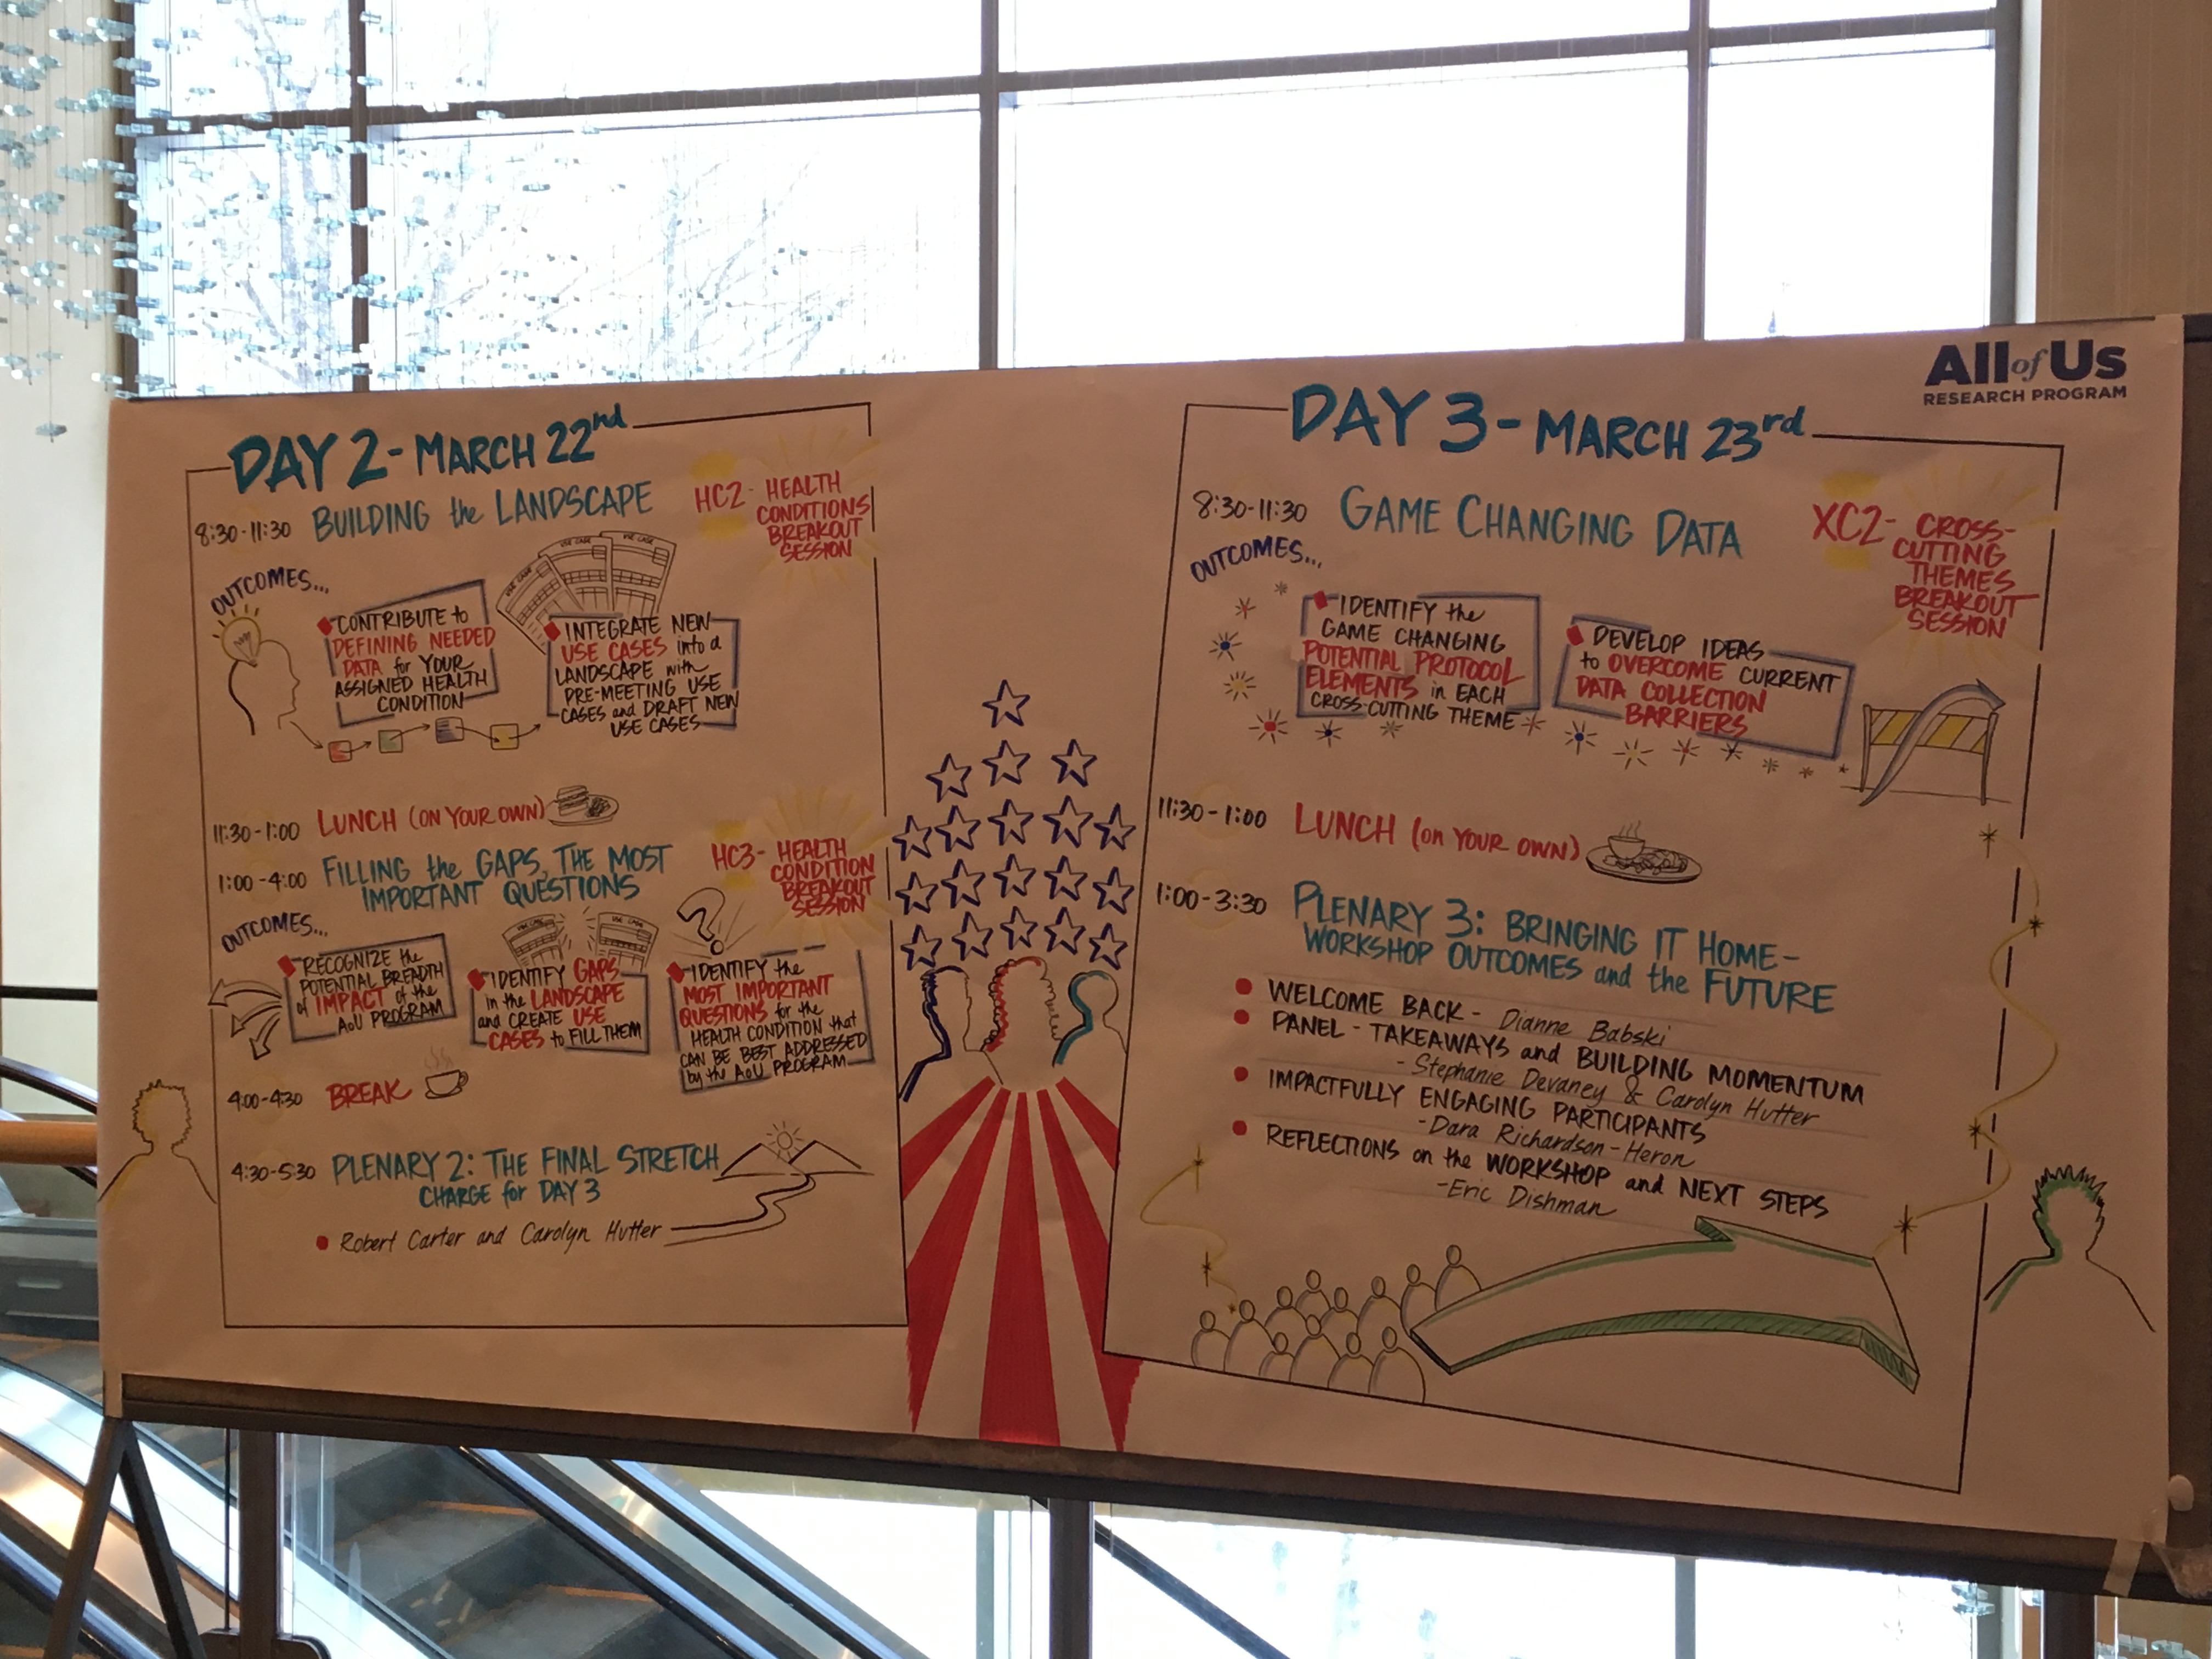 All of Us
RESEARCH PROGRAM
DAY 2 - MARCH 22nd
8:30-11:30 BUILDING the LANDSCAPE
HC2 - HEALTH
CONDITIONS
BREAKOUT
SESSION
OUTCOMES...
USE CASE
USE CASE
USE CASE
CONTRIBUTE to
DEFINING NEEDED
DATA for YOUR
ASSIGNED HEALTH
CONDITION
INTEGRATE NEW
USE CASES into a
LANDSCAPE with
PRE-MEETING USE
CASES and DRAFT NEW
USE CASES
11:30-1:00 LUNCH (ON YOUR OWN)
1:00-4:00 FILLING the GAPS, THE MOST
IMPORTANT QUESTIONS
HC3 - HEALTH
CONDITION
BREAKOUT
SESSION
OUTCOMES...
USE CASE
USE CASE
?
RECOGNIZE the
POTENTIAL BREADTH
of IMPACT of the
AoU PROGRAM
IDENTIFY GAPS
in the LANDSCAPE
and CREATE USE
CASES to FILL THEM
IDENTIFY the
MOST IMPORTANT
QUESTIONS for the
HEALTH CONDITION that
CAN BE BEST ADDRESSED
by the AoU PROGRAM
4:00-4:30 BREAK
4:30-5:30 PLENARY 2: THE FINAL STRETCH
CHARGE for DAY 3
Robert Carter and Carolyn Hutter
DAY 3 - MARCH 23rd
8:30-11:30 GAME CHANGING DATA
XC2 - CROSS-
CUTTING
THEMES
BREAKOUT
SESSION
OUTCOMES...
IDENTIFY the
GAME CHANGING
POTENTIAL PROTOCOL
ELEMENTS in EACH
CROSS-CUTTING THEME
DEVELOP IDEAS
to OVERCOME CURRENT
DATA COLLECTION
BARRIERS
11:30-1:00 LUNCH (on YOUR OWN)
1:00-3:30 PLENARY 3: BRINGING IT HOME -
WORKSHOP OUTCOMES and the FUTURE
WELCOME BACK - Dianne Babski
PANEL - TAKEAWAYS and BUILDING MOMENTUM
- Stephanie Devaney & Carolyn Hutter
IMPACTFULLY ENGAGING PARTICIPANTS
- Dara Richardson-Heron
REFLECTIONS on the WORKSHOP and NEXT STEPS
- Eric Dishman